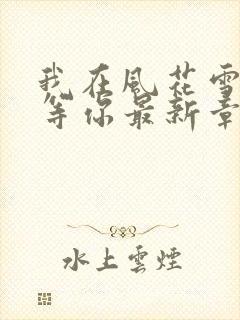 我在風花雪
等你最新章
水上雲煙